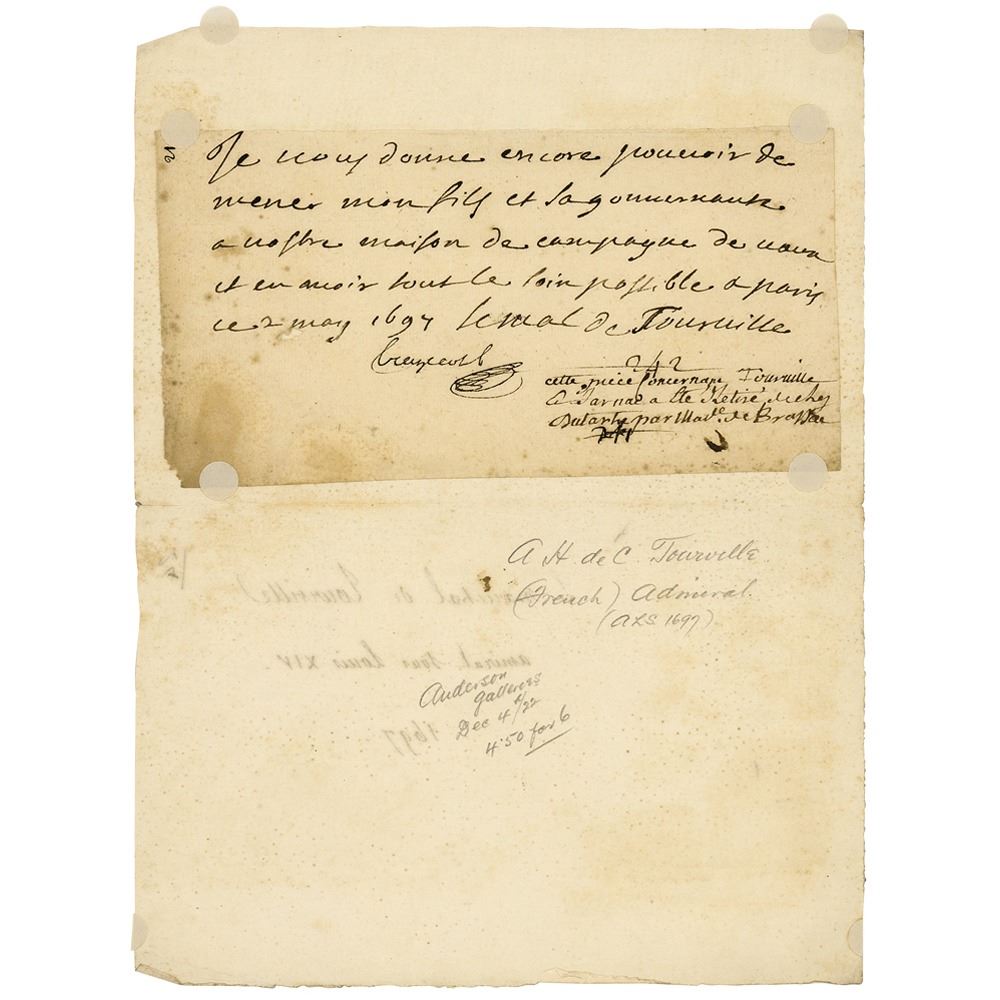 Je vous donne encore pouvoir de
mener mon fils et sa gouvernante
a nostre maison de campagne de
et en avoir tout le soin possible a paris
ce 2 may 1697 le mal de Tourville
242
cette piece Concernant Tourville
a ete Retiré de chez
par Made. de Brassac
A H de C Tourville
(French) Admiral.
(ALS 1697)
Marechal de Tourville)
amiral sous Louis XIV.
1697
Anderson
Galleries
Dec 4/22
4.50 for 6